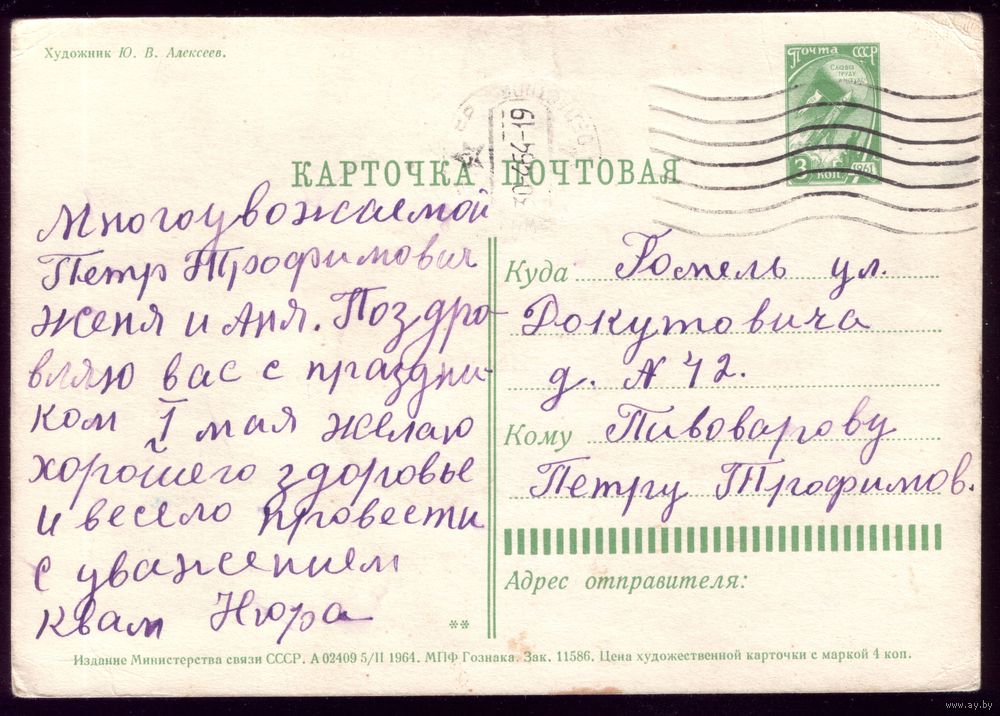 Художник Ю. В. Алексеев.
Почта СССР
СЛАВА
ТРУДУ
3 коп. 1961
30-4-64-19
КАРТОЧКА ПОЧТОВАЯ
Многоувожаемой
Петр Трофимович
Женя и Аня. Поздро-
вляю вас с праздни-
ком 1 мая желаю
хорошего здоровье
и весело провести
с уважением
квам Нюра
Куда Гомель ул.
Докутовича
д. № 42.
Кому Пивоварову
Петру Трофимов.
Адрес отправителя:
**
Издание Министерства связи СССР. А 02409 5/II 1964. МПФ Гознака. Зак. 11586. Цена художественной карточки с маркой 4 коп.
www.ay.by